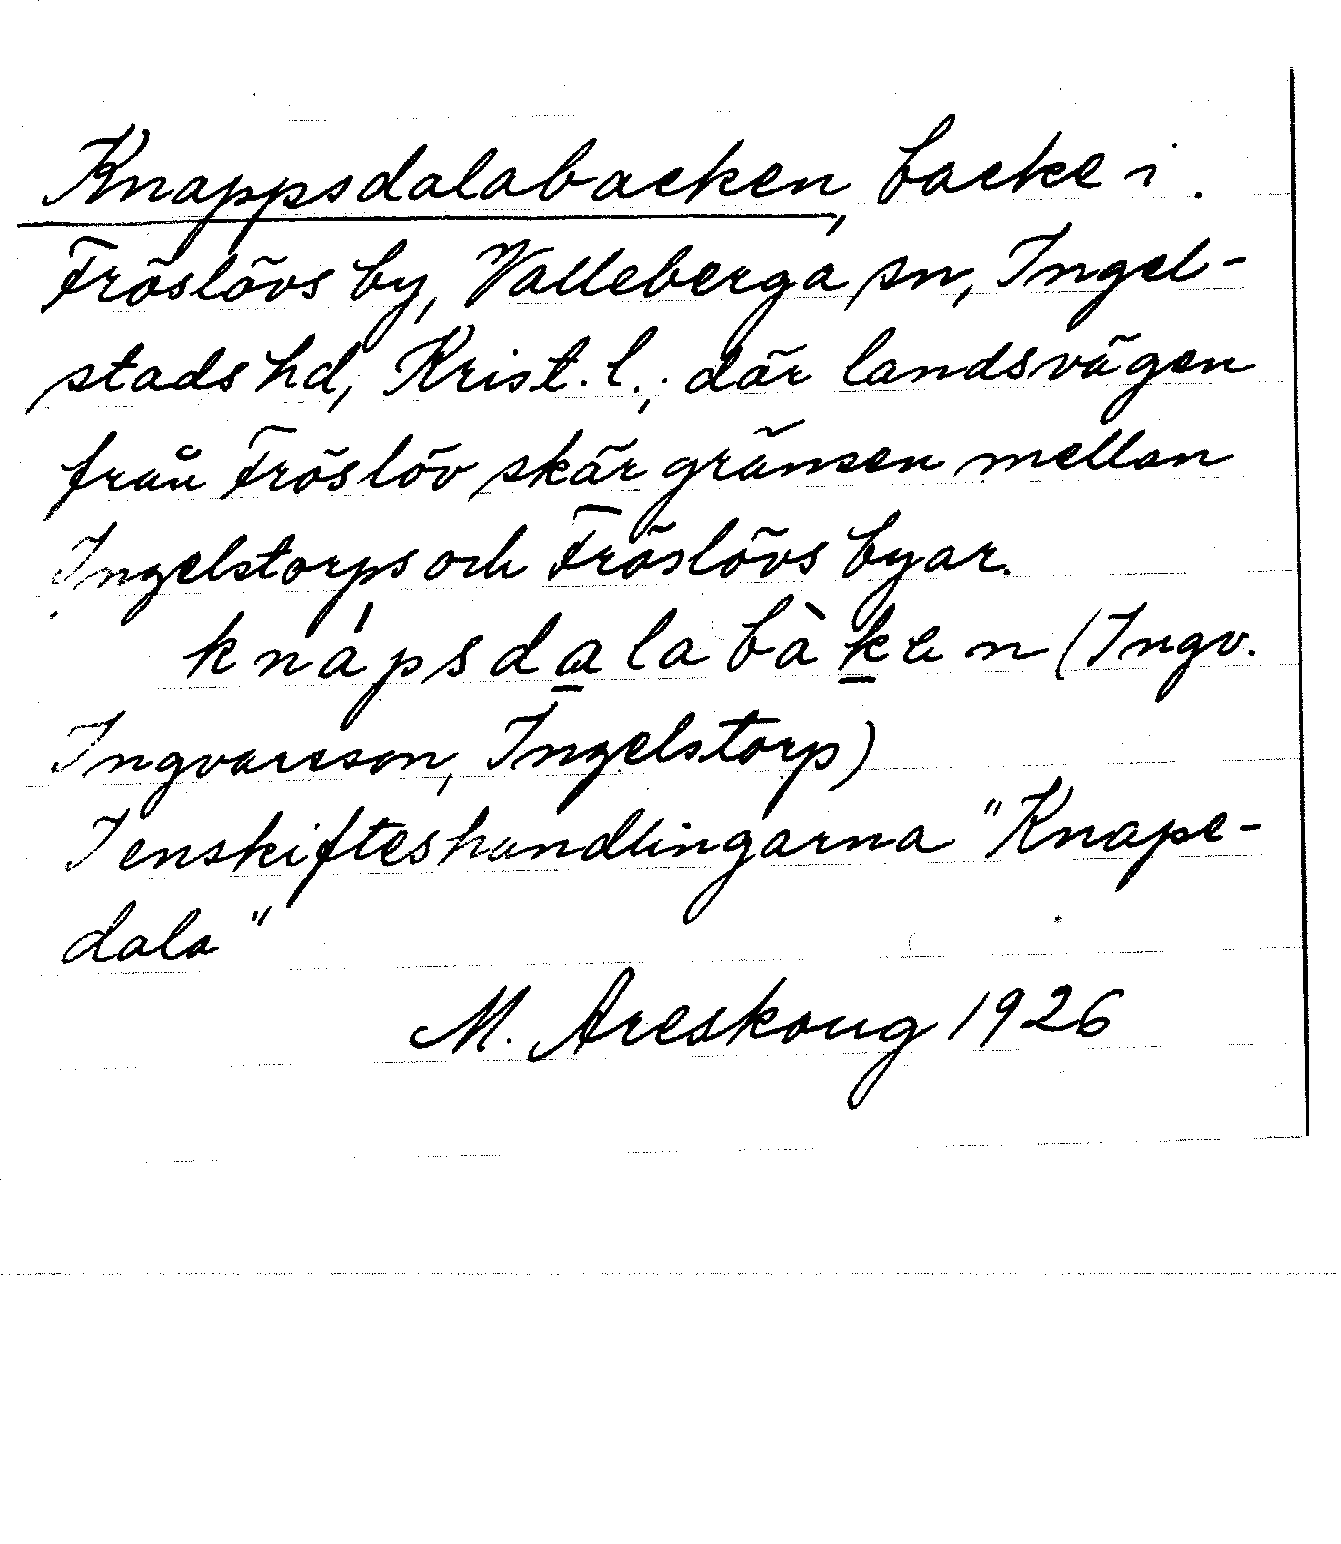 Knappsdalabacken, backe i
Fröslövs by, Valleberga sn, Ingel-
stads hd, Krist. l., där landsvägen
från Fröslöv skär gränsen mellan
Ingelstorps och Fröslövs byar.
knápsdalabàken (Ingv.
Ingvarsson, Ingelstorp)
I enskifteshandlingarna "Knape-
dala"
M. Areskoug 1926